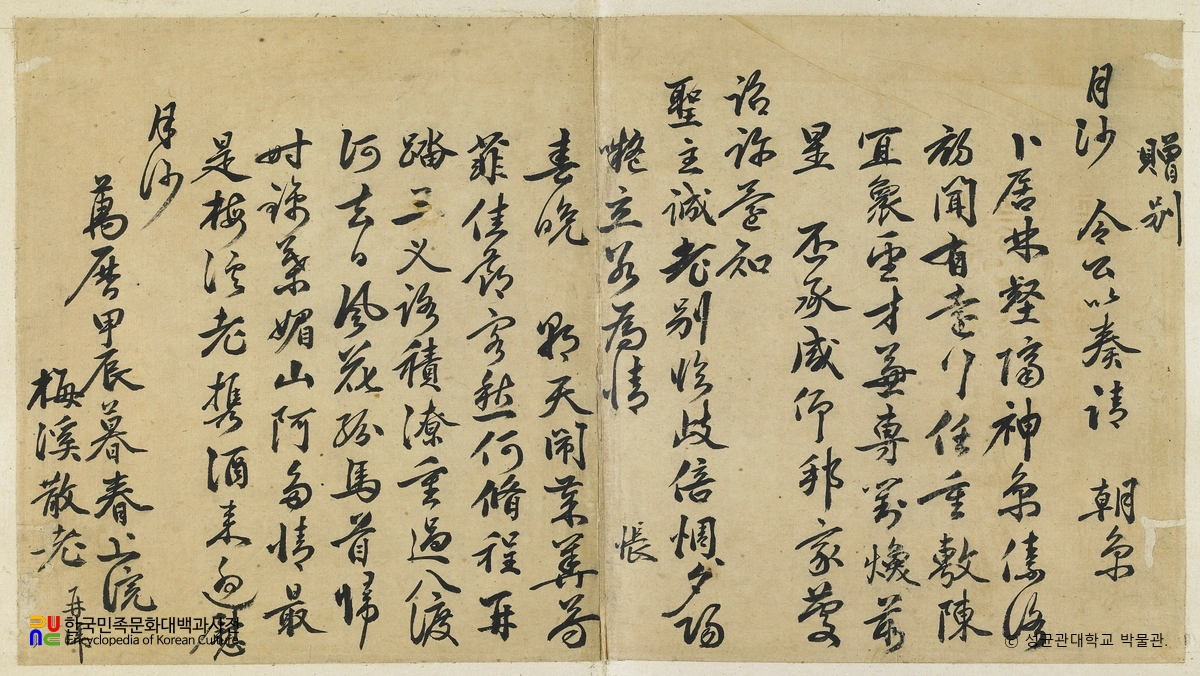 贈別
月沙 令公以奏請 朝京
卜居林壑隔神京傣洛
初聞有遠行任重敷陳
宜衆望才兼專對煥文
星 丕承咸仰邦家慶
詔許並知
聖主誠老別臨歧倍惆
悵
立若為情
春晚 天閙葉
菲佳節客愁何脩程再
踏三叉路積潦重過八渡
河去日風花紛馬首歸
時 葉媚山阿多情最
是梅溪老携酒來
月沙
萬曆甲辰暮春上浣
梅溪散老 再拜
한국민족문화대백과사전
Encyclopedia of Korean Culture
© 성균관대학교 박물관.